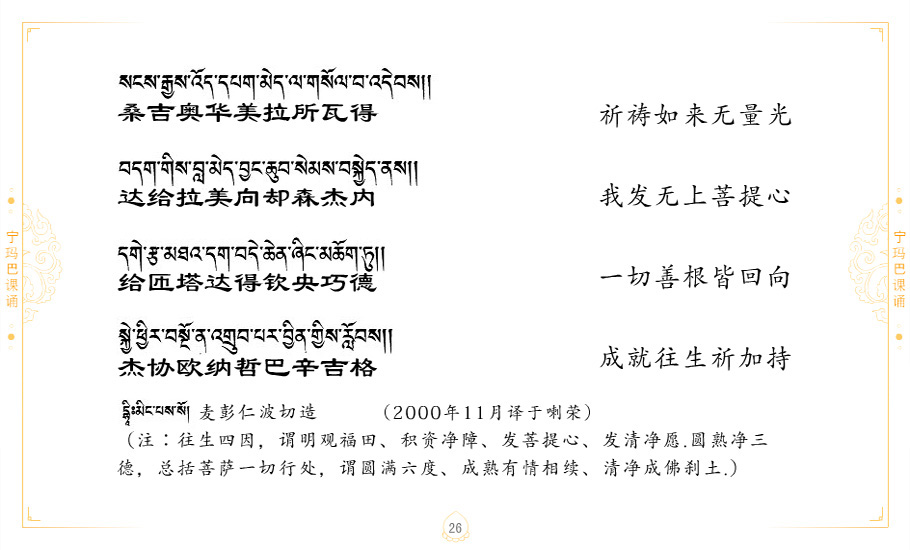 སངས་རྒྱས་འོད་དཔག་མེད་ལ་གསོལ་བ་འདེབས།།
桑吉奥华美拉所瓦得
祈祷如来无量光
བདག་གིས་བླ་མེད་བྱང་ཆུབ་སེམས་བསྐྱེད་ནས།།
达给拉美向却森杰内
我发无上菩提心
དགེ་རྩ་མཐའ་དག་བདེ་ཆེན་ཞིང་མཆོག་ཏུ།།
给匝塔达得钦央巧德
一切善根皆回向
སྐྱེ་ཕྱིར་བསྔོ་ན་འགྲུབ་པར་བྱིན་གྱིས་རློབས།།
杰协欧纳哲巴辛吉格
成就往生祈加持
麦彭仁波切造 （2000年11月译于喇荣）
（注：往生四因，谓明观福田、积资净障、发菩提心、发清净愿.圆熟净三
德，总括菩萨一切行处，谓圆满六度、成熟有情相续、清净成佛刹土.）
宁玛巴课诵
宁玛巴课诵
26